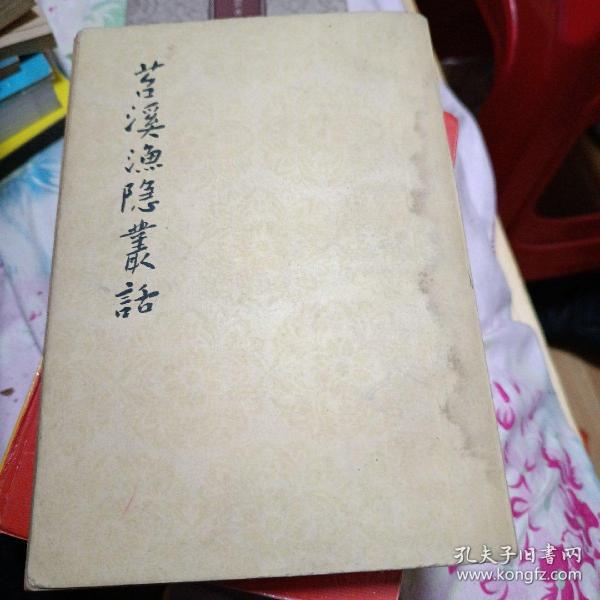 苕溪漁隱叢話
孔夫子旧書网
www.kongfz.com